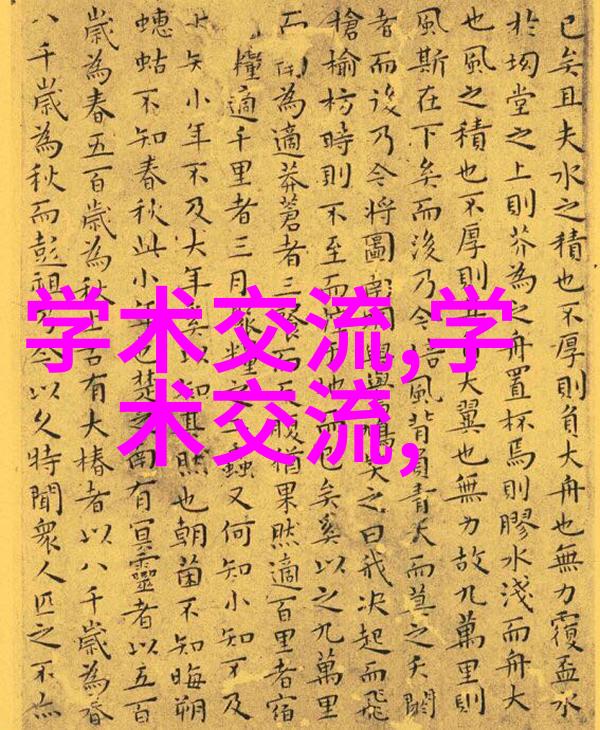 学术交流,学
术交流,
已矣且夫水之積也不厚則負大舟也無力覆盃水
於坳堂之上則芥為之舟置杯焉則膠水淺而舟大
也風之積也不厚則大翼也無力故九萬里則
風斯在下矣而後乃今培風背負青天而莫之夭閼
者而後乃今將圖南蜩鳩笑之曰我決起而飛
槍榆枋時則不至而地而已矣奚以之九萬里
而為適莽蒼者三而反腹猶果然適百里者宿
糧適千里者三月聚糧之二蟲又何知小知不及
大知小年不及大年奚以知其然也朝菌不知晦朔
蟪蛄不知春秋此小年也楚之南有冥靈者以五百
歲為春五百歲為秋上古有大椿者以八千歲為春
八千歲為秋而彭祖今以久特聞衆人匹之不亦